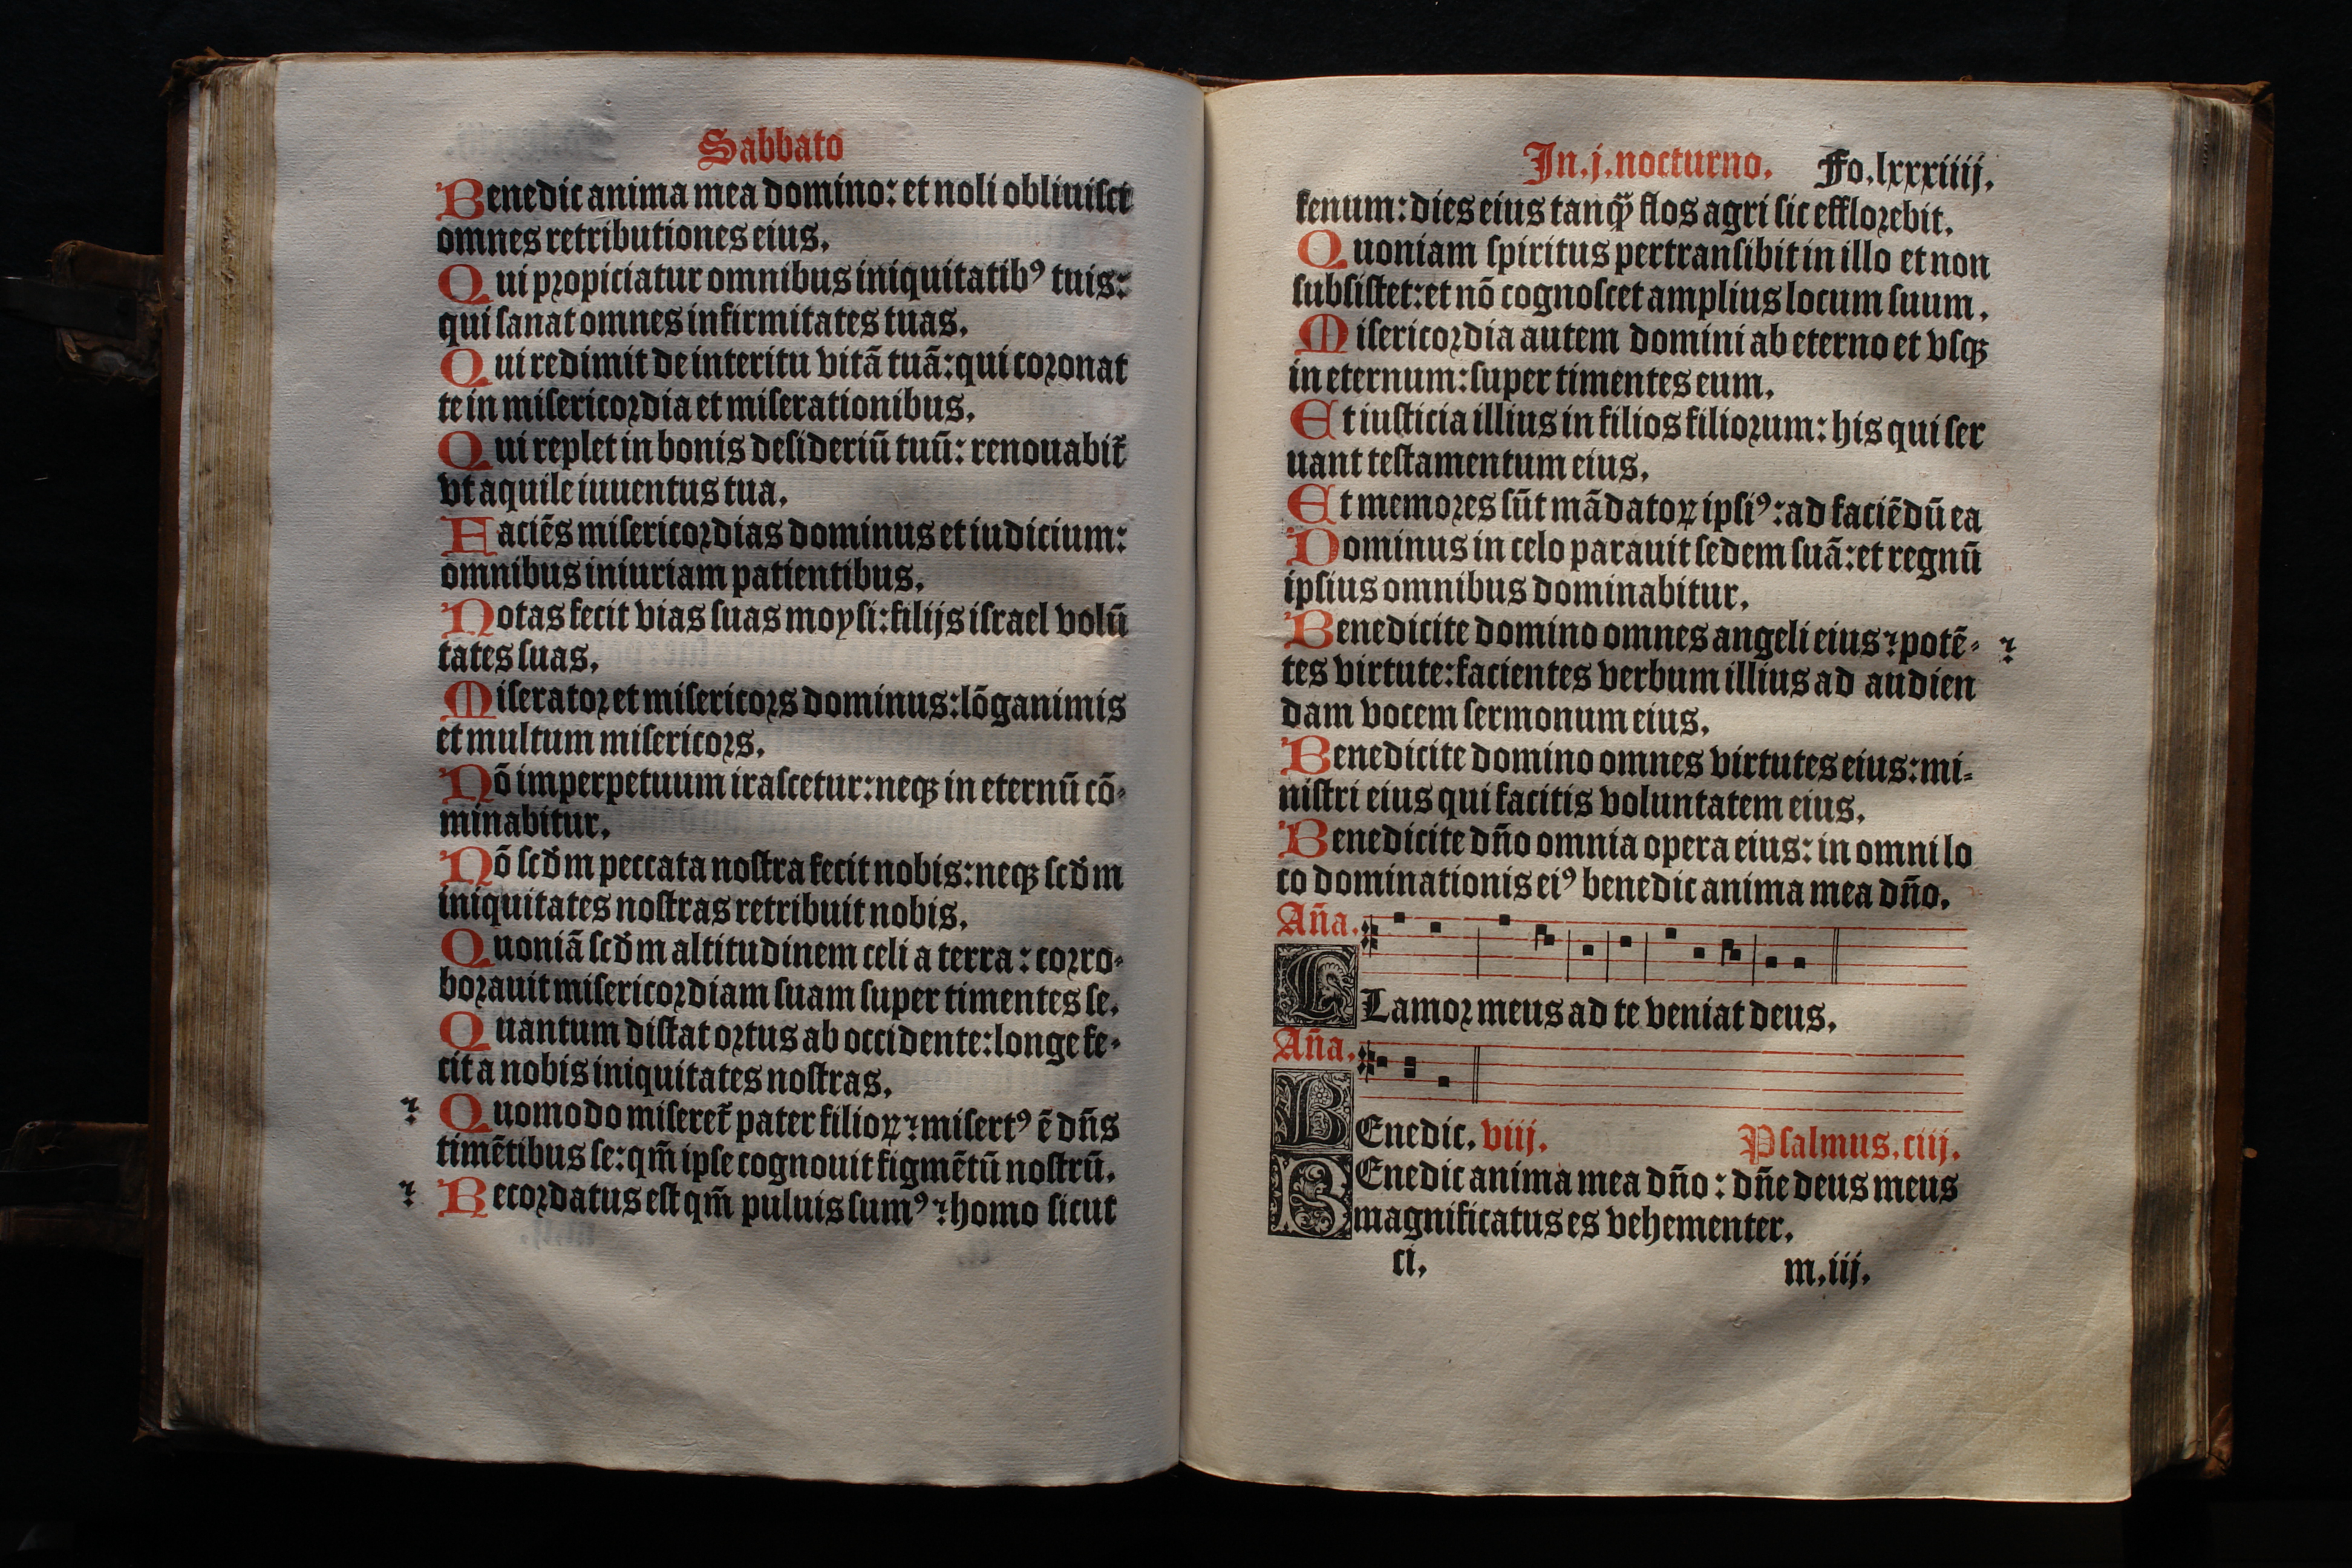 Sabbato
Benedic anima mea domino: et noli obliuisci
omnes retributiones eius.
Qui propiciatur omnibus iniquitatibꝰ tuis:
qui sanat omnes infirmitates tuas.
Qui redimit de interitu vitā tuā: qui coronat
te in misericordia et miserationibus.
Qui replet in bonis desideriū tuū: renouabit᷑
vt aquile iuuentus tua.
Faciēs misericordias dominus et iudicium:
omnibus iniuriam patientibus.
Notas fecit vias suas moysi: filijs israel volū
tates suas.
Miserator et misericors dominus: lōganimis
et multum misericors.
Nō imperpetuum irascetur: neqꝫ in eternū cō-
minabitur.
Nō scd̄m peccata nostra fecit nobis: neqꝫ scd̄m
iniquitates nostras retribuit nobis.
Quoniā scd̄m altitudinem celi a terra: corro-
borauit misericordiam suam super timentes se.
Quantum distat ortus ab occidente: longe fe-
cit a nobis iniquitates nostras.
Quomodo miseret᷑ pater filioꝝ ⁊ misertꝰ ē dn̄s
timētibus se: qm̄ ipse cognouit figmētū nostrū.
Recordatus est qm̄ puluis sumꝰ ⁊ homo sicut
In. j. nocturno. Fo. lxxxiiij.
fenum: dies eius tanqꝫ̄ flos agri sic efflorebit.
Quoniam spiritus pertransibit in illo et non
subsistet: et nō cognoscet amplius locum suum.
Misericordia autem domini ab eterno et vsqꝫ
in eternum: super timentes eum.
Et iusticia illius in filios filiorum: his qui ser
uant testamentum eius.
Et memores sūt mādatoꝝ ipsiꝰ: ad faciēdū ea
Dominus in celo parauit sedem suā: et regnū
ipsius omnibus dominabitur.
Benedicite domino omnes angeli eius ⁊ potē-
tes virtute: facientes verbum illius ad audien
dam vocem sermonum eius.
Benedicite domino omnes virtutes eius: mi-
nistri eius qui facitis voluntatem eius.
Benedicite dn̄o omnia opera eius: in omni lo
co dominationis eiꝰ benedic anima mea dn̄o.
An̄a.
CLamor meus ad te veniat deus.
An̄a.
BEnedic. viij. Psalmus. ciij.
BEnedic anima mea dn̄o: dn̄e deus meus
magnificatus es vehementer.
ci. m. iij.